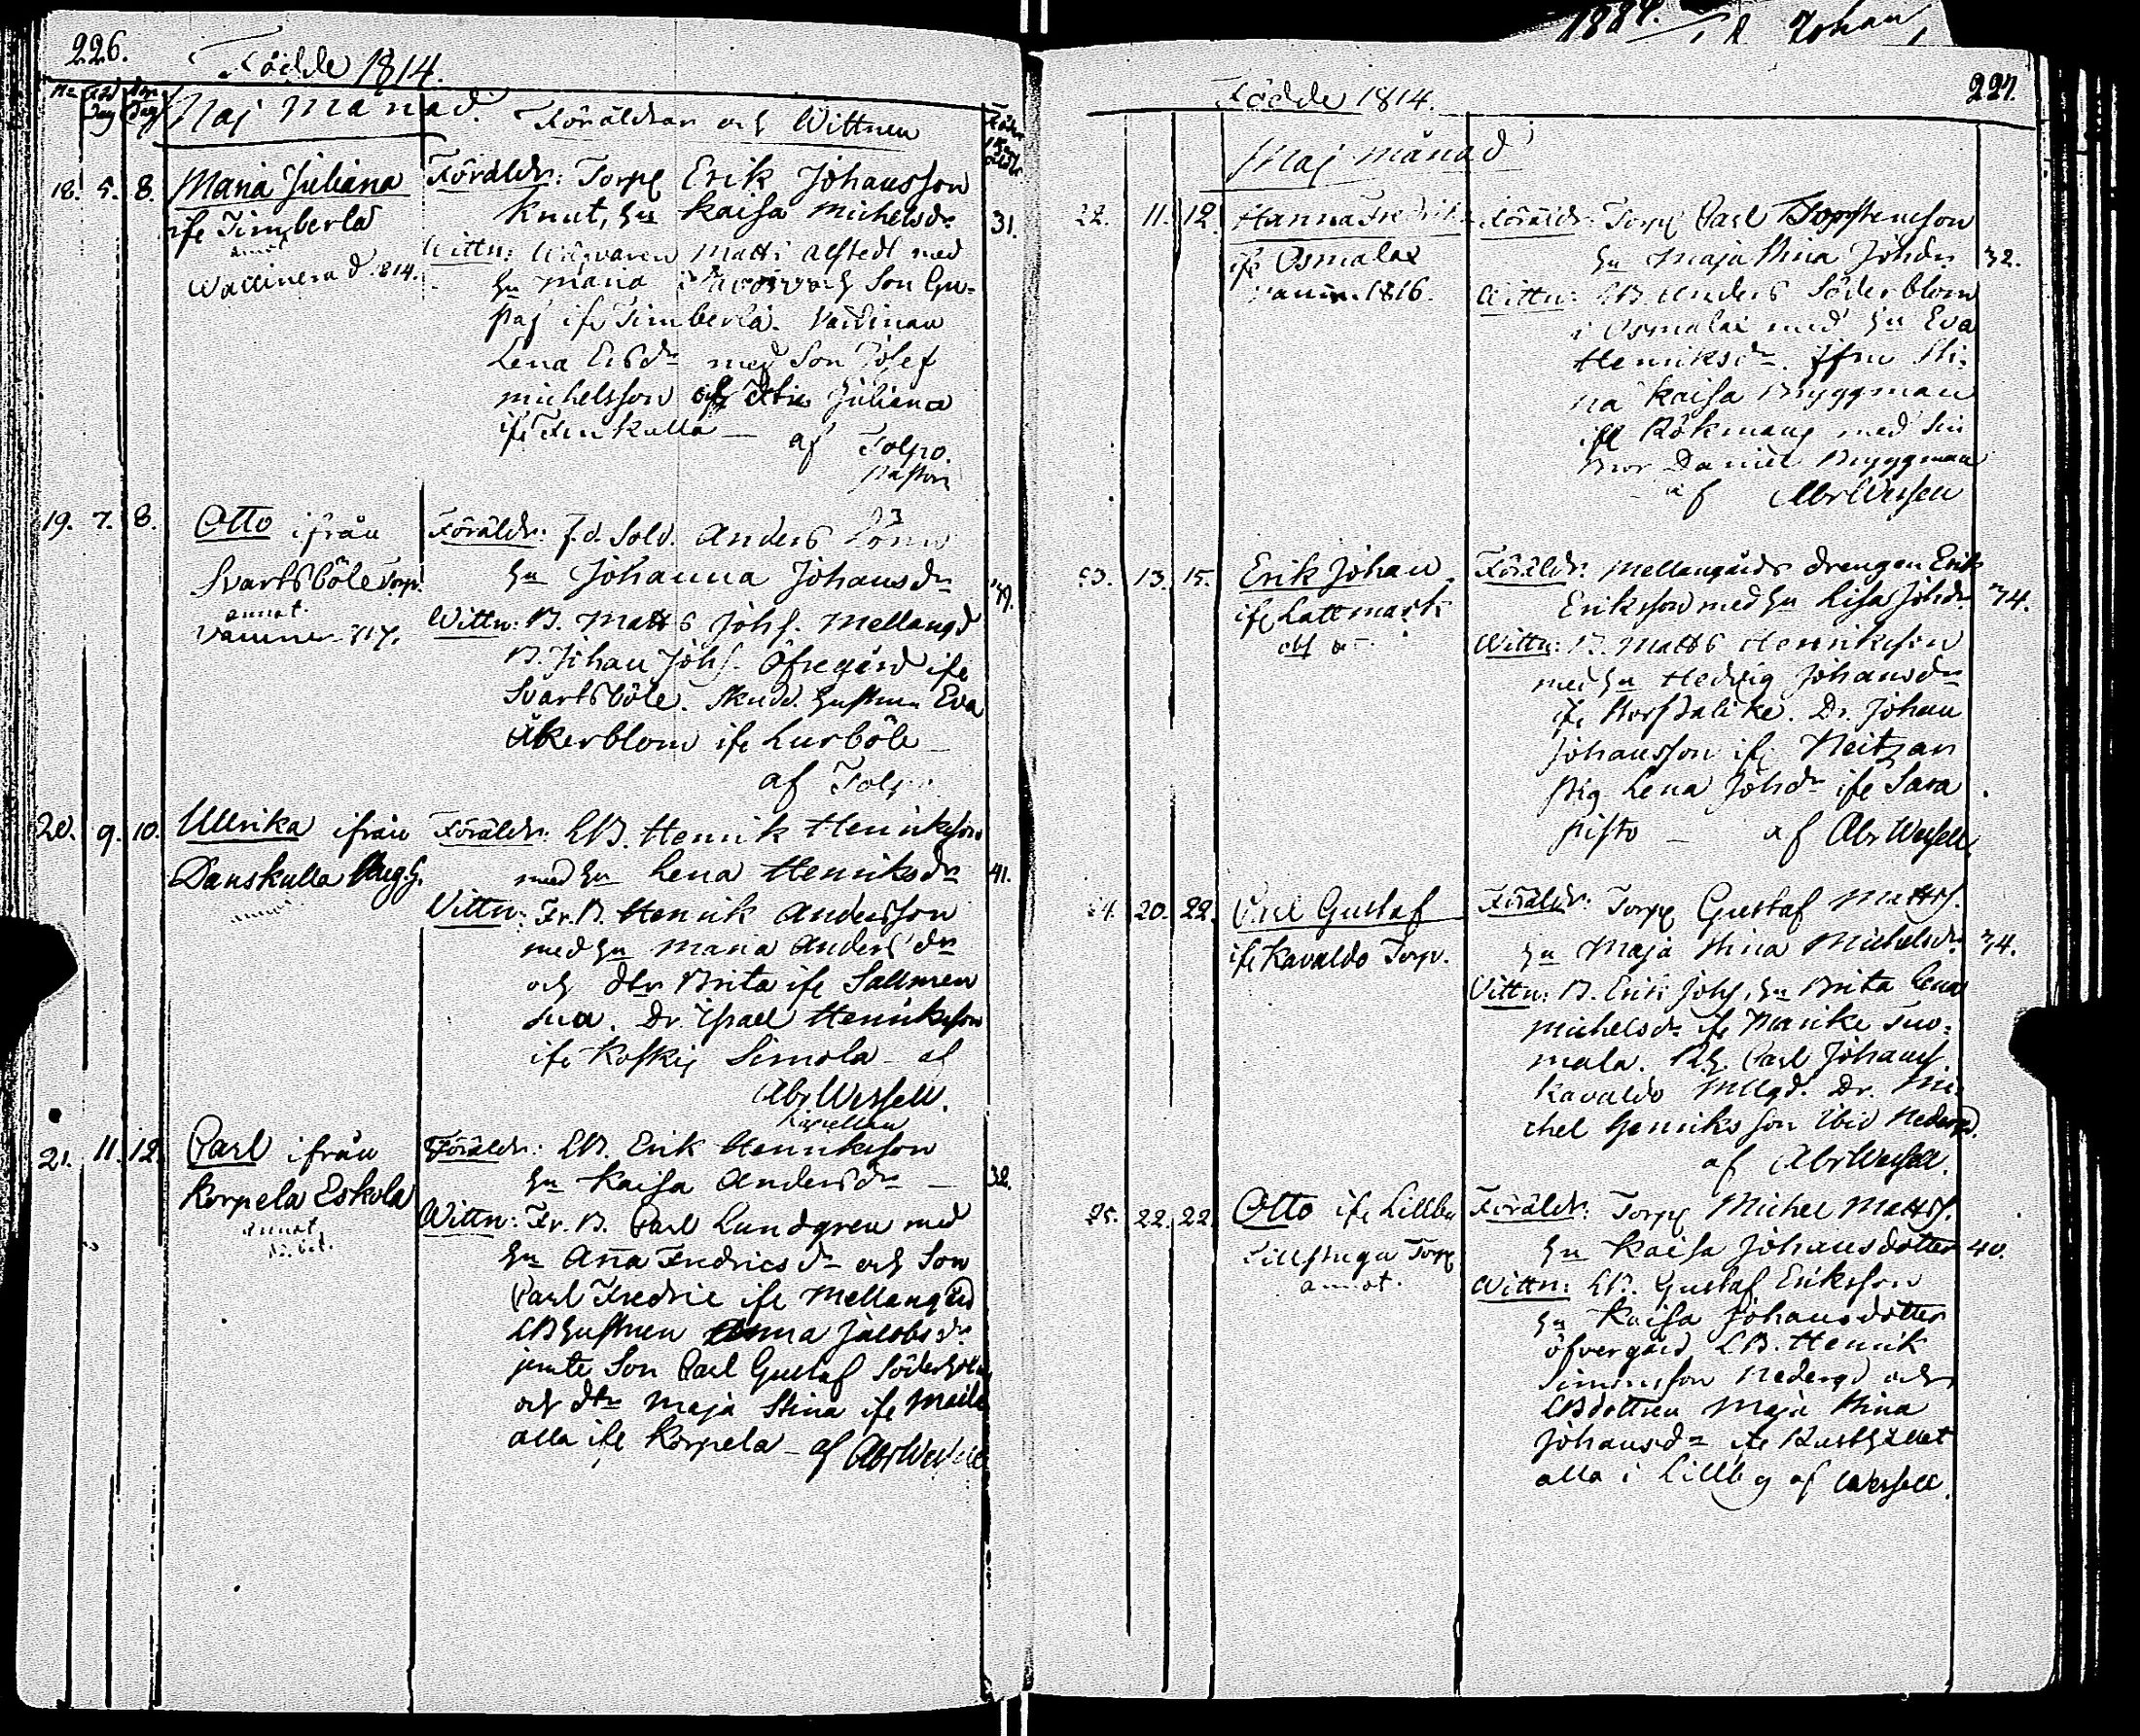 226.
Födde 1814.
No Föd Dag Döp Dag
Maj Månad.
Föräldrar och Wittnen
18. 5. 8. Maria Juliana
ifr Timberla
annot
Vaccinerad 814.
Föräldr: Torp Erik Johansson
Knut, hu Kaisa Michelsdr
31.
Wittn: Matts Alstedt med
hu Maria och Son Gu-
staf ifr Timberla.
Lena Ersdr med Son Josef
Michelsson och dtr Juliana
ifr Finkulla — af Tolpo.
Pastor
19. 7. 8. Otto ifrån
Svartsböle Torp.
annot.
Föräldr: f.d. Sold. Anders Lönn
hu Johanna Johansdr
Wittn: B. Matts Johs. Mellangd
B. Johan Johs. Öfregård ifr
Svartsböle. Hustrun Eva
Åkerblom ifr Lurböle —
af Tolpo
20. 9. 10. Ullrika ifrån
Danskulla
Föräldr: LB. Henrik Henriksson
med hu Lena Henriksdr
41.
Wittn: Fr.B. Henrik Andersson
med hu Maria Andersdr
och dtr Brita ifr Sallmen
sua. Dr. Israel Henriksson
ifr Koskis Simola — af
Abr Wessell.
Capellan
21. 11. 12. Carl ifrån
Korpela Eskola
annot
Föräldr: LB. Erik Henriksson
hu Kaisa Andersdr —
32.
Wittn: Fr. B. Carl Lundgren med
hu Anna Fredricsdr och Son
Carl Fredric ifr Mellangård
LBhustruen Anna Jacobsdr
jemte Son Carl Gustaf Söderholm
och dtr Maja Stina ifr
alla ifr Korpela — af Abr Wessell
1884. Johan
Födde 1814.
227.
Maj månad
22. 11. 12. Hanna Fredrik
ifr Osmalax
Vaccin. 1816.
Föräldr: Torp Carl Torstensson
hu Maja Stina Johdr
32.
Wittn: LB Anders Söderblom
i Osmalax med hu Eva
Henriksdr. Jfru Sti-
na Kaisa Bryggman
ifr Rökmans med Sin
Bror Daniel Bryggman
af Abr Wessell
23. 13. 15. Erik Johan
ifr Lattmark
Föräldr: Mellangårds drengen Erik
Eriksson med hu Lisa Johdr
34.
Wittn: B. Matts Henriksson
med hu Hedvig Johansdr
ifr Storstalike. Dr. Johan
Johansson ifr Neitzar
Pig Lena Johdr ifr Sara
pisto — af Abr Wessell.
24. 20. 22. Carl Gustaf
ifr Kavaldo Torp.
Föräldr: Torp Gustaf Matts.
hu Maja Stina Michelsdr
34.
Wittn: B. Erik Johs, hu Brita Lena
Michelsdr ifr Marike Tuo-
mala. Carl Johans
Kavaldo Mllgd. Dr. Mi-
chel Henriksson ibid Nedergd.
af Abr Wessell.
25. 22. 22. Otto ifr Lillby
Lillstuga Torp
annot.
Föräldr: Torp Michel Matts.
hu Kaisa Johansdotter
40.
Wittn: LB. Gustaf Eriksson
hu Kaisa Johansdotter
öfvergård, LB. Henrik
Simonsson Nedergd och
LBdottren Maja Stina
Johansdr ifr Rusthållet
alla i Lillby af Wessell.